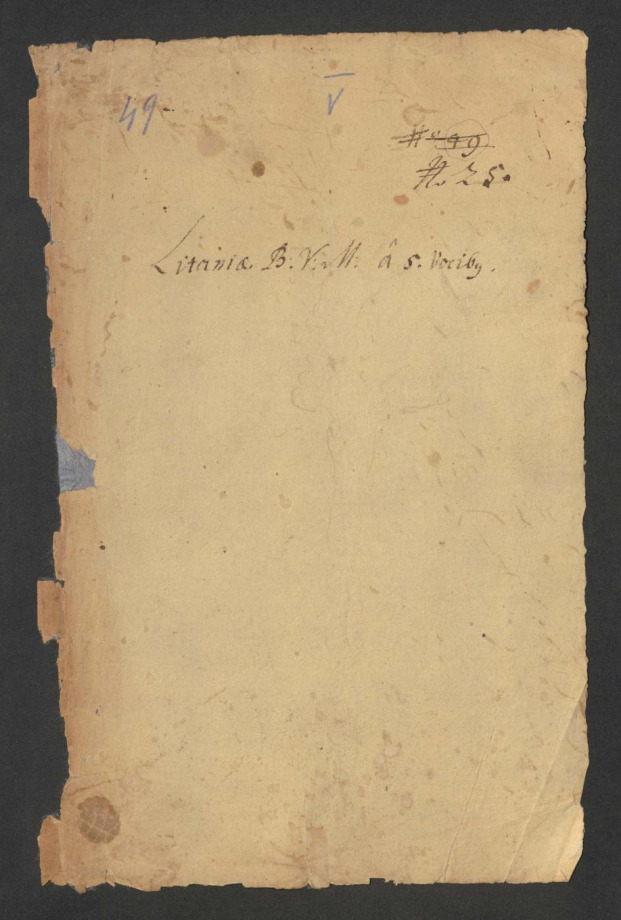 49 V
No 49
No 25.
Litaniæ B: V: M: â 5. Vocibꝯ.